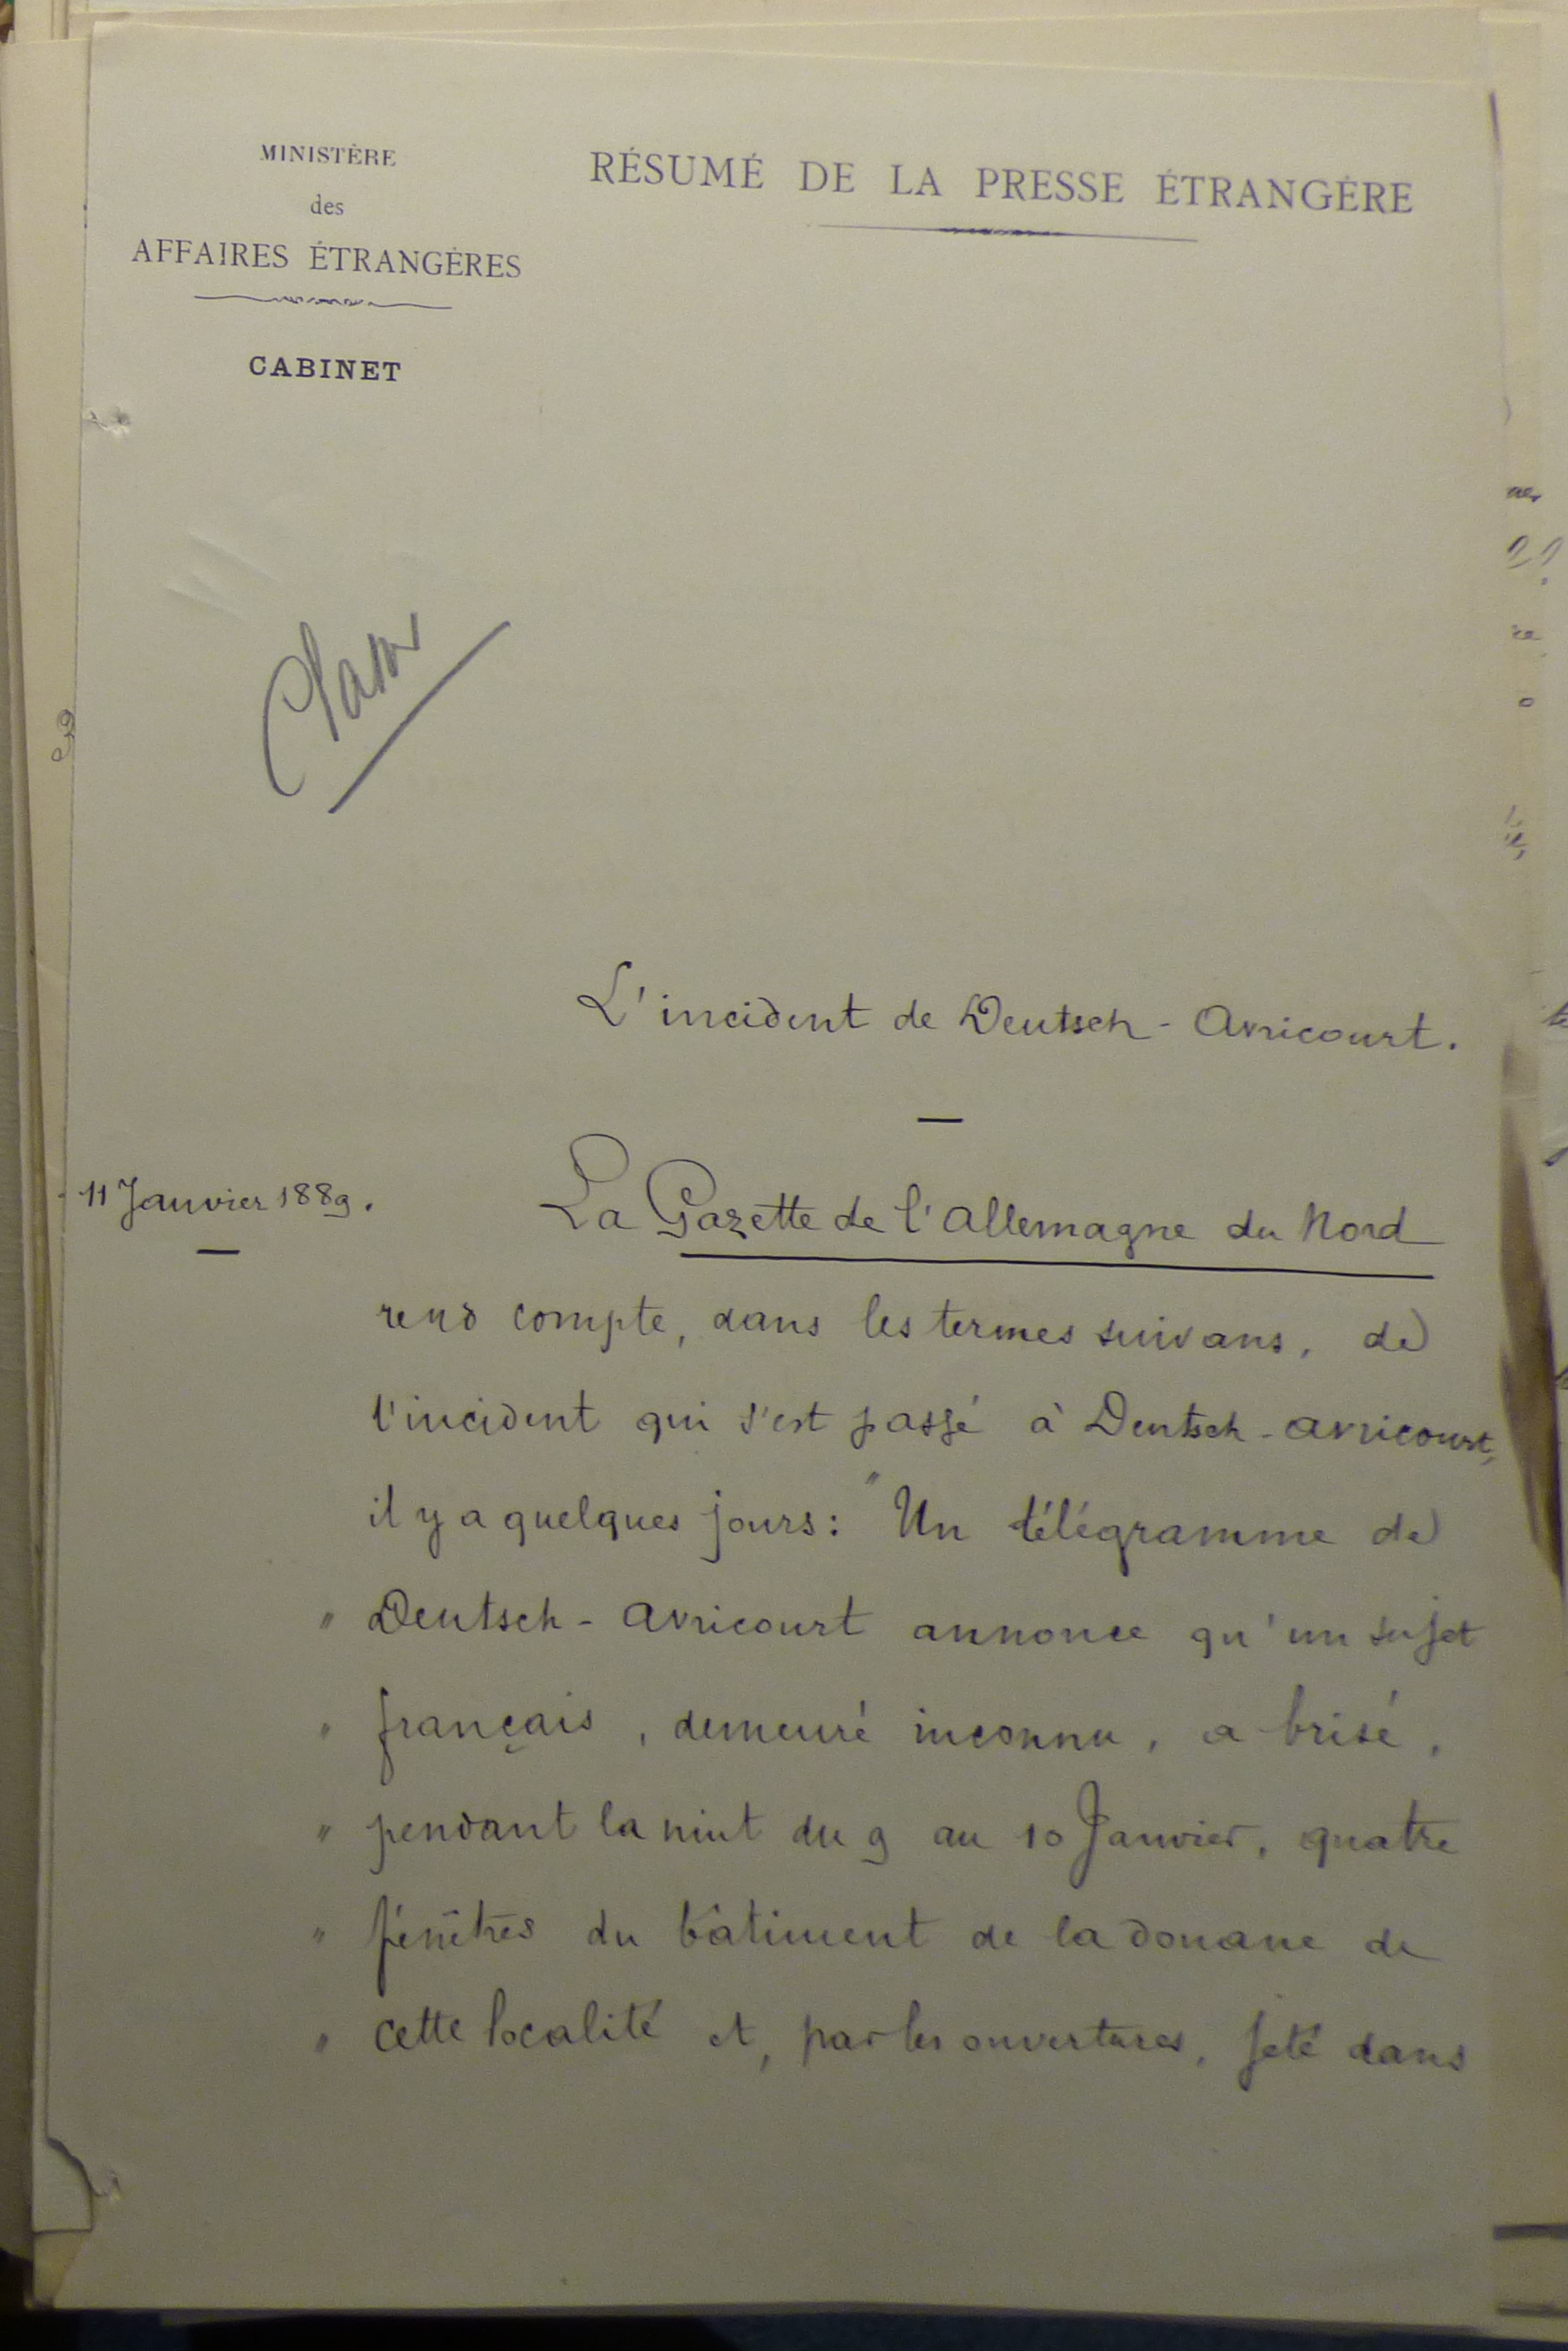 MINISTÈRE
des
AFFAIRES ÉTRANGÈRES
CABINET
RÉSUMÉ DE LA PRESSE ÉTRANGÈRE
L'incident de Deutsch-Avricourt.
11 Janvier 1889.
La Gazette de l'Allemagne du Nord
rend compte, dans les termes suivans, de
l'incident qui s'est passé à Deutsch-Avricourt,
il y a quelques jours: "Un télégramme de
" Deutsch-Avricourt annonce qu'un sujet
" français, demeuré inconnu, a brisé,
" pendant la nuit du 9 au 10 Janvier, quatre
" fenêtres du bâtiment de la douane de
" cette localité et, par les ouvertures, jeté dans